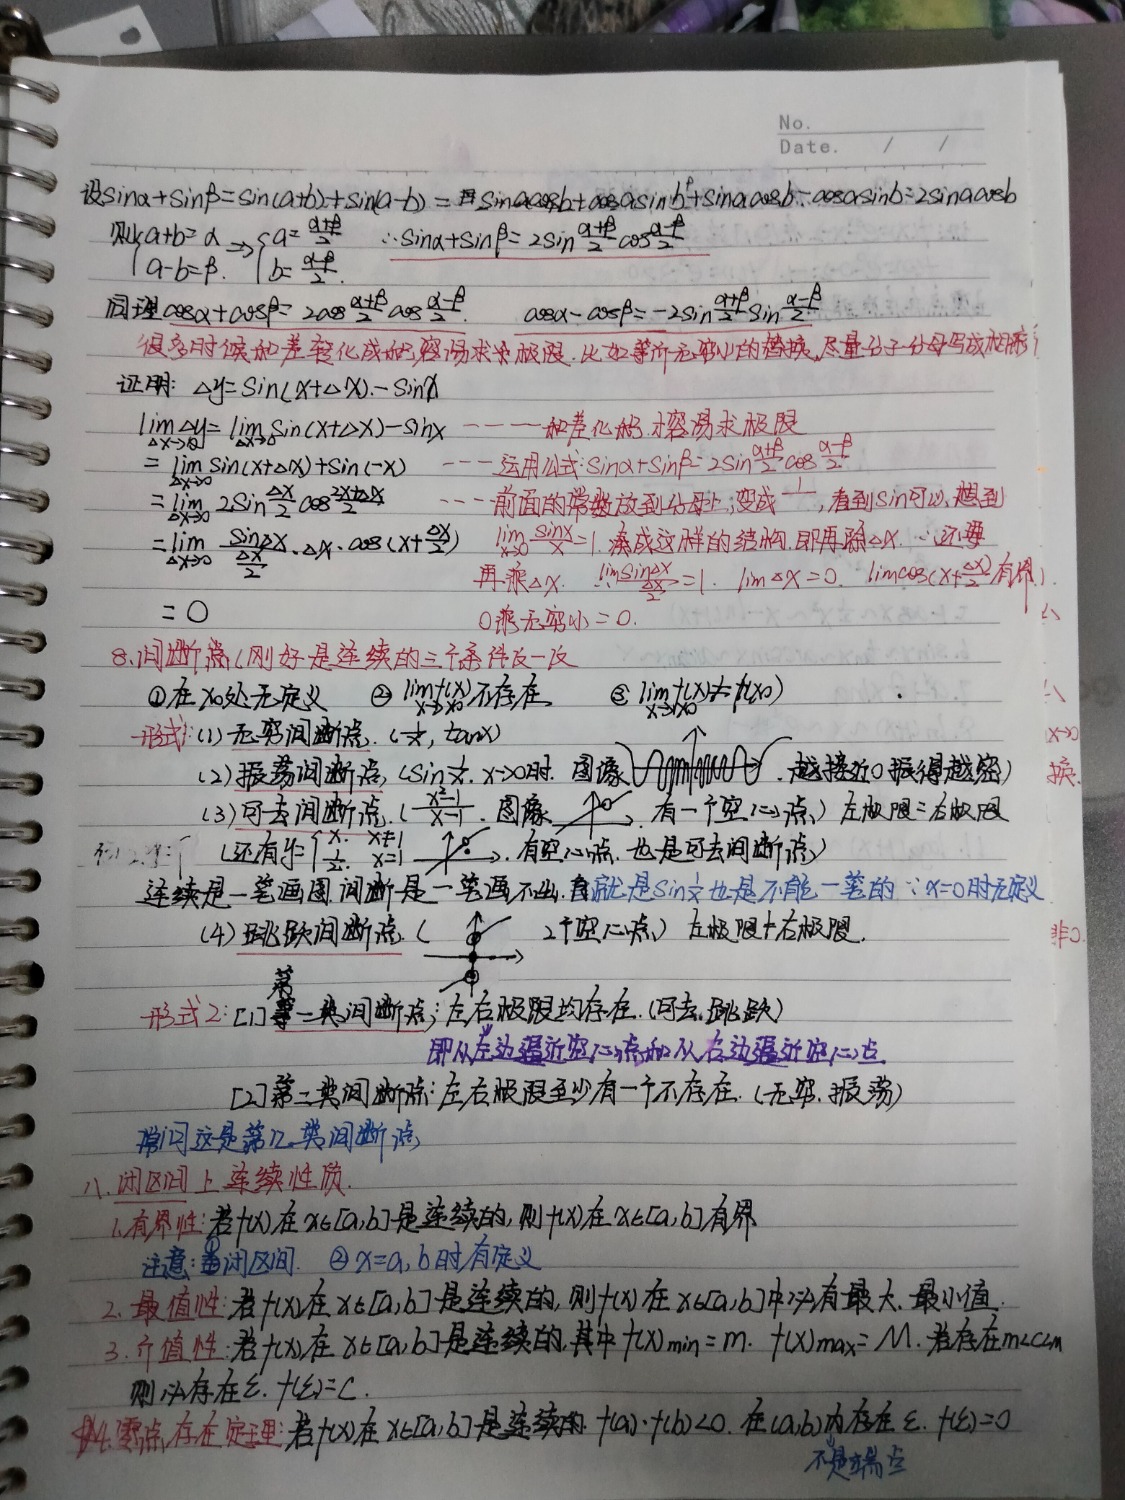 No.
Date. / /
设sinα+sinβ=sin(a+b)+sin(a-b)=sinacosb+cosasinb+sinacosb-cosasinb=2sinacosb
则{a+b=α → {a=(α+β)/2 ∴sinα+sinβ=2sin(α+β)/2 cos(α-β)/2
a-b=β. b=(α-β)/2.
同理cosα+cosβ=2cos(α+β)/2 cos(α-β)/2. cosα-cosβ=-2sin(α+β)/2 sin(α-β)/2
很多时候和差变化成积容易求极限.比如等价无穷小的替换,尽量分子分母写成相乘
证明: Δy=sin(x+Δx)-sinx
lim Δx→0 Δy=lim Δx→0 sin(x+Δx)-sinx ----和差化积才容易求极限
=lim Δx→0 sin(x+Δx)+sin(-x) ---运用公式:sinα+sinβ=2sin(α+β)/2 cos(α-β)/2
=lim Δx→0 2sin Δx/2 cos (2x+Δx)/2 ----前面的常数放到分母上,变成 ,看到sin可以想到
=lim Δx→0 ·Δx·cos(x+Δx/2) lim x→0 sinx/x=1.凑成这样的结构.即再除Δx.∴还要
再乘Δx. =1. limΔx=0. limcos(x+Δx/2)有界.
=0 0乘无穷小=0.
8.间断点(刚好是连续的三个条件反一反
①在x₀处无定义 ②lim x→x₀ f(x)不存在. ③lim x→x₀ f(x)≠f(x₀)
形式1:(1)无穷间断点.(1/x, tanx)
(2)振荡间断点,(sin 1/x. x→0时. 图像 .越接近0振得越密)
(3)可去间断点.((x²-1)/(x-1). 图像 . 有一个空心点)左极限=右极限
(还有y={x. x≠1 1/2. x=1 .有空心点.也是可去间断点)
连续是一笔画图.间断是一笔画不出.就是sin 1/x也是不能一笔的∵x=0时无定义
(4)跳跃间断点.( 2个空心点)左极限≠右极限.
形式2:[1]第一类间断点:左右极限均存在.(可去.跳跃)
即从左边逼近空心点和从右边逼近空心点
[2]第二类间断点:左右极限至少有一个不存在.(无穷.振荡)
常问这是第几类间断点
八.闭区间上连续性质.
1.有界性:若f(x)在x∈[a,b]是连续的,则f(x)在x∈[a,b]有界
注意:①闭区间. ②x=a,b时有定义
2.最值性:若f(x)在x∈[a,b]是连续的,则f(x)在x∈[a,b]中必有最大.最小值.
3.介值性:若f(x)在x∈[a,b]是连续的.其中f(x)min=m. f(x)max=M.若存在m<c<M
则必存在ξ.f(ξ)=c.
4.零点存在定理:若f(x)在x∈[a,b]是连续的.f(a)·f(b)<0.在(a,b)内存在ξ.f(ξ)=0
不是端点